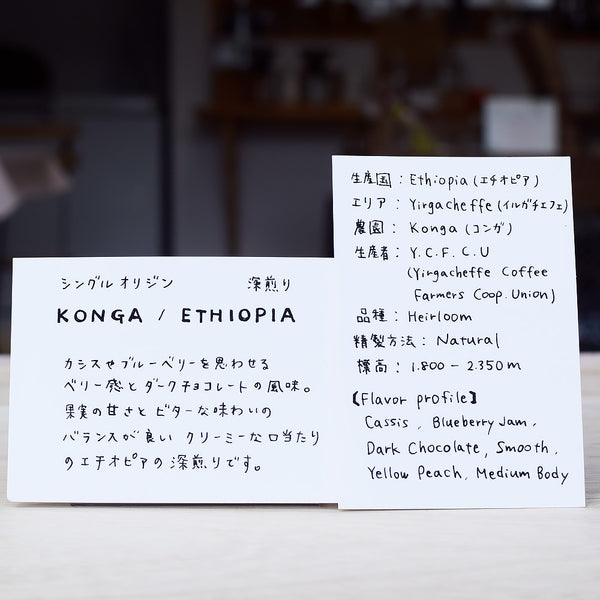 シングルオリジン 深煎り
KONGA / ETHIOPIA
カシスやブルーベリーを思わせる
ベリー感とダークチョコレートの風味。
果実の甘さとビターな味わいの
バランスが良い クリーミーな口当たり
のエチオピアの深煎りです。
生産国 : Ethiopia (エチオピア)
エリア : Yirgacheffe (イルガチエフェ)
農園 : Konga (コンガ)
生産者 : Y.C.F.C.U
(Yirgacheffe Coffee
Farmers Coop. Union)
品種 : Heirloom
精製方法 : Natural
標高 : 1.800 - 2.350m
【Flavor profile】
Cassis, Blueberry Jam,
Dark Chocolate, Smooth,
Yellow Peach, Medium Body